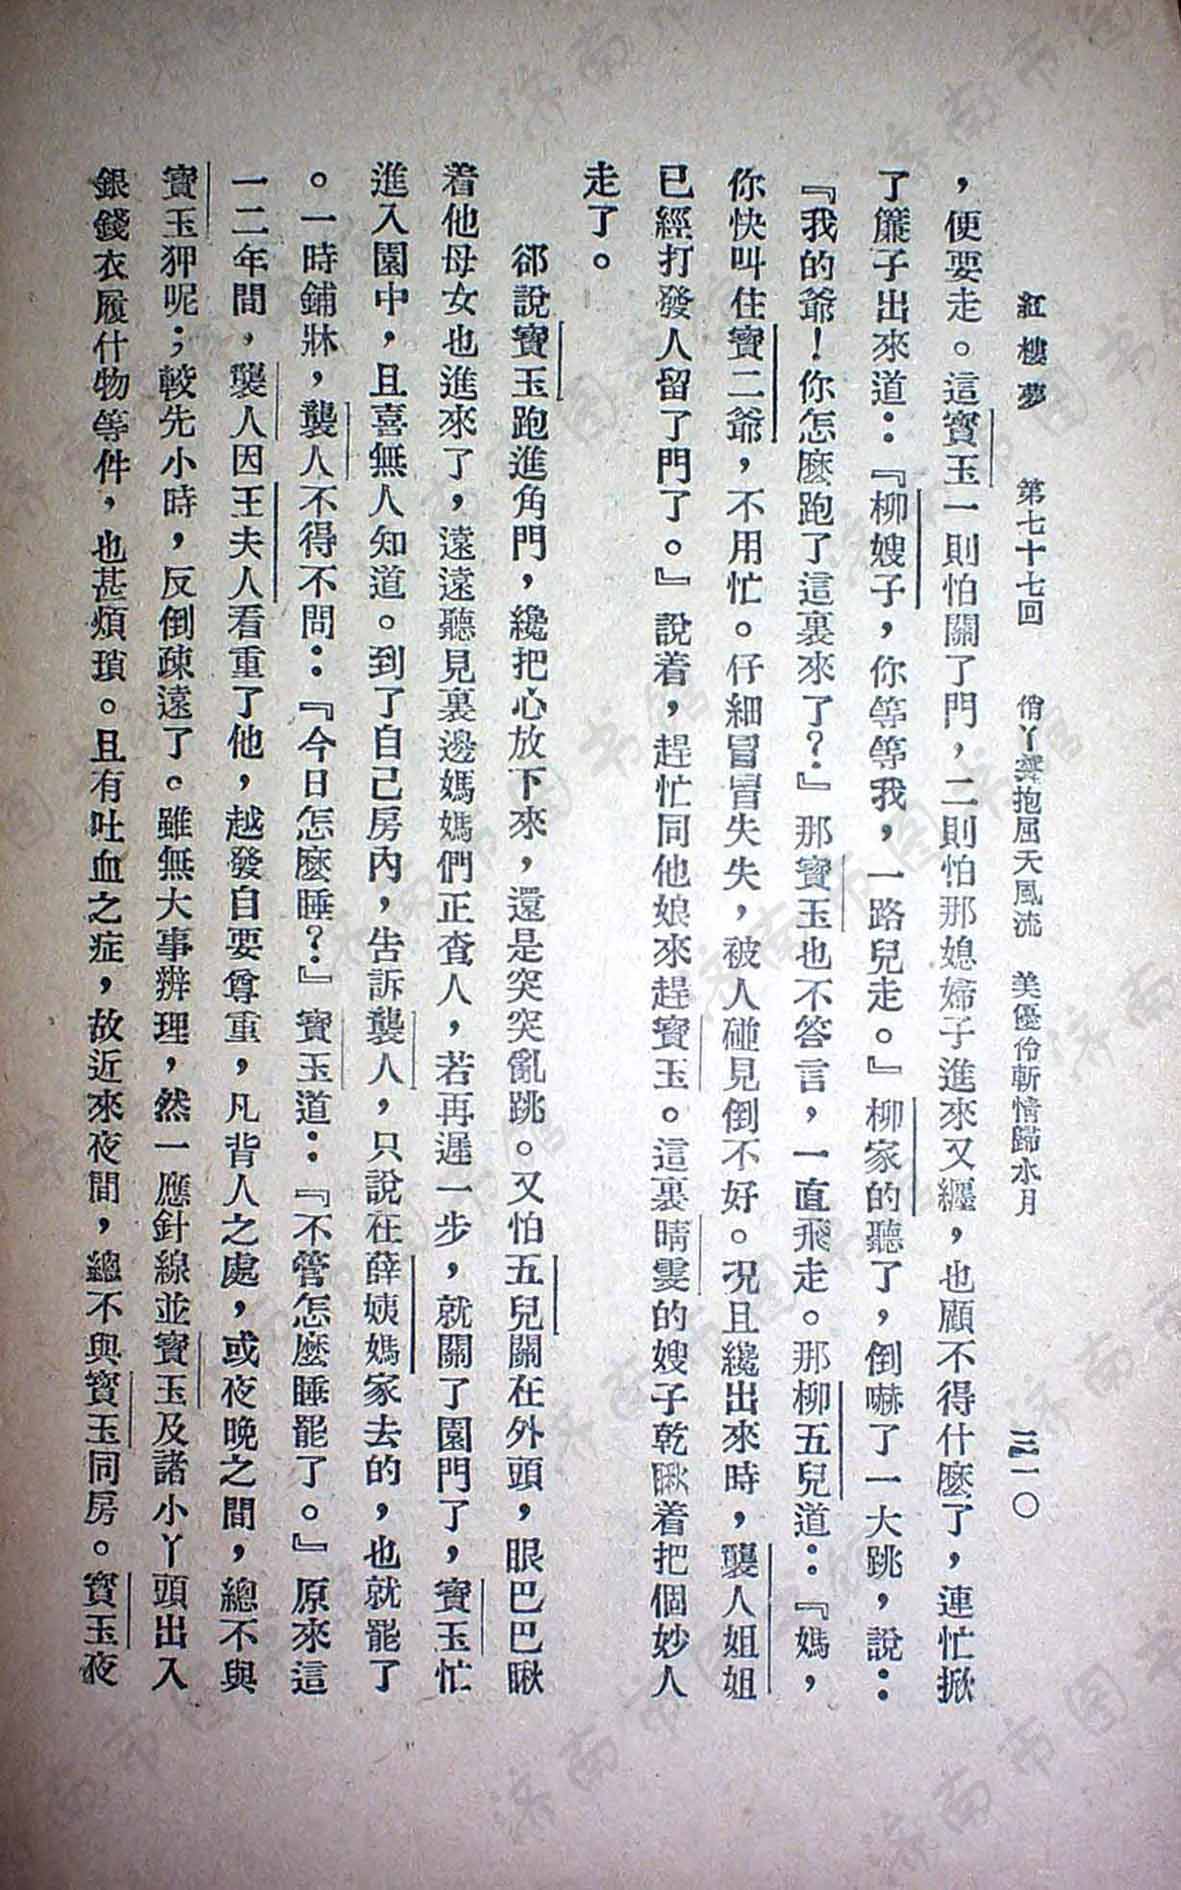 紅樓夢　第七十七回　俏丫鬟抱屈夭風流　美優伶斬情歸水月　三一〇
，便要走。這寶玉一則怕關了門，二則怕那媳婦子進來又纏，也顧不得什麽了，連忙掀
了簾子出來道：『柳嫂子，你等等我，一路兒走。』柳家的聽了，倒嚇了一大跳，說：
『我的爺！你怎麽跑了這裏來了？』那寶玉也不答言，一直飛走。那柳五兒道：『媽，
你快叫住寶二爺，不用忙。仔細冒冒失失，被人碰見倒不好。況且纔出來時，襲人姐姐
已經打發人留了門了。』說着，趕忙同他娘來趕寶玉。這裏晴雯的嫂子乾瞅着把個妙人
走了。
郤說寶玉跑進角門，纔把心放下來，還是突突亂跳。又怕五兒關在外頭，眼巴巴瞅
着他母女也進來了，遠遠聽見裏邊媽媽們正查人，若再遲一步，就關了園門了，寶玉忙
進入園中，且喜無人知道。到了自己房內，告訴襲人，只說在薛姨媽家去的，也就罷了
。一時鋪牀，襲人不得不問：『今日怎麽睡？』寶玉道：『不管怎麽睡罷了。』原來這
一二年間，襲人因王夫人看重了他，越發自要尊重，凡背人之處，或夜晚之間，總不與
寶玉狎呢；較先小時，反倒疎遠了。雖無大事辦理，然一應針線並寶玉及諸小丫頭出入
銀錢衣履什物等件，也甚煩瑣。且有吐血之症，故近來夜間，總不與寶玉同房。寶玉夜
济南市图书馆